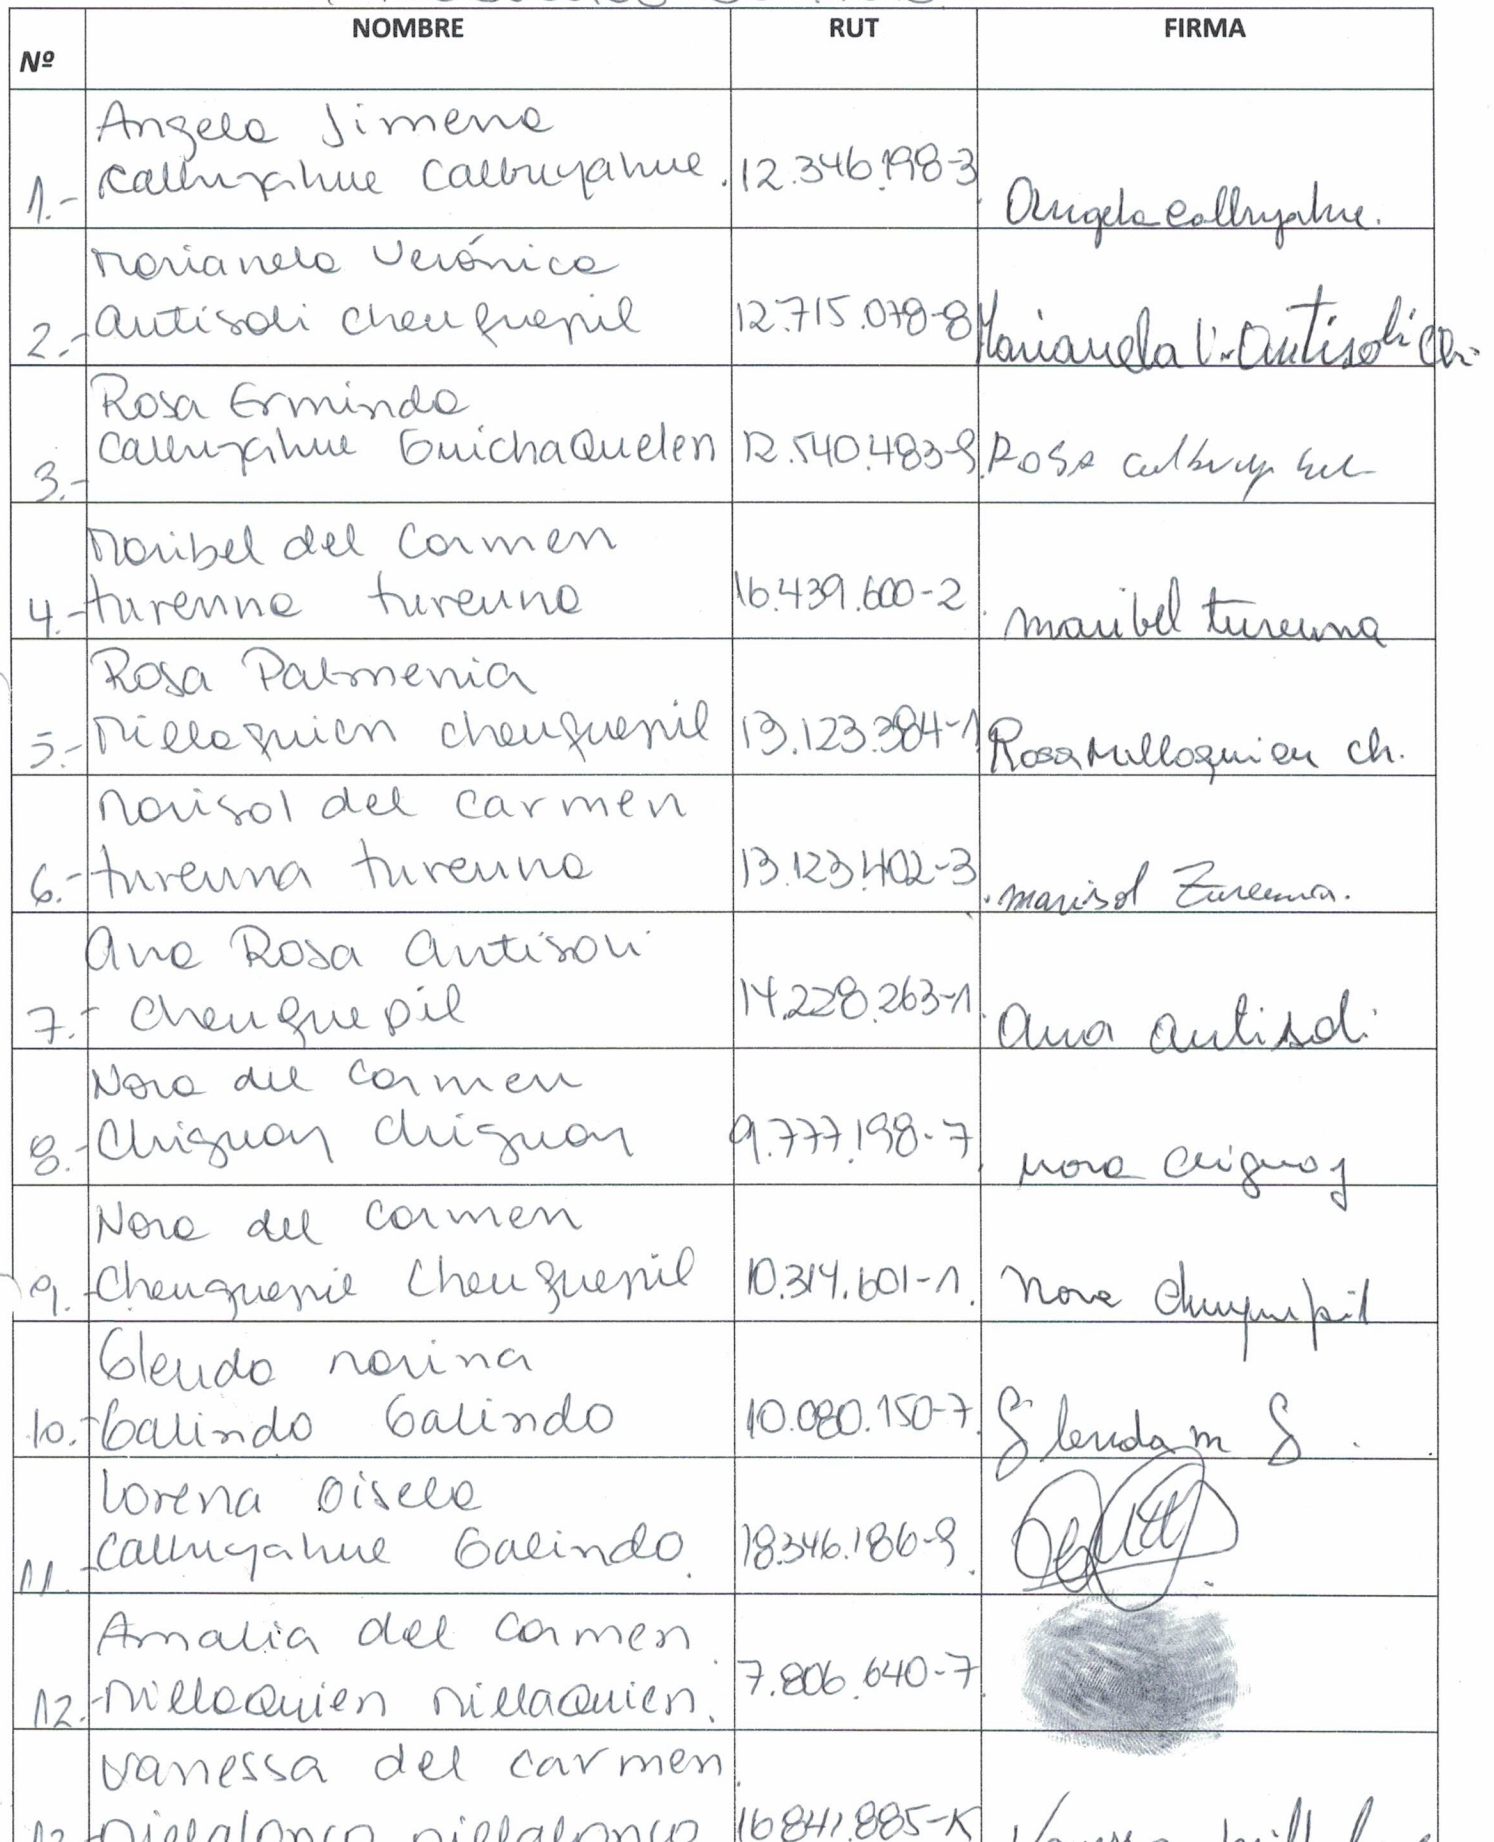 NOMBRE RUT FIRMA
Nº
Angela Jimena
Calbuyahue Calbuyahue. 12.346.198-3
1.- Angela Calbuyahue.
Marianela Verónica
2.- Antisoli Cheuquepil 12.715.078-8 Marianela V. Antisoli Ch.
Rosa Erminda
Calbuyahue Guichaquelen 12.540.483-9 Rosa
3.-
Maribel del Carmen
4.- turenna tureuna 16.439.600-2 maribel tureuna
Rosa Palmenia
5.- Millaquien Cheuquepil 13.123.384-1 Rosa Millaquien Ch.
Marisol del Carmen
6.- tureuna tureuna 13.123.402-3 marisol Tureuna.
Ana Rosa Antisoli
7.- Cheuquepil 14.228.263-1 Ana Antisoli
Nora del Carmen
8.- Chiguay Chiguay 9.777.198-7 Nora Chiguay
Nora del Carmen
9. Cheuquepil Cheuquepil 10.314.601-1. Nora Cheuquepil
Glenda Marina
10.- Galindo Galindo 10.080.150-7 Glenda M G.
Lorena Gisela
11.- Calbuyahue Galindo. 18.346.186-9
Amalia del Carmen
12.- Millaquien Millaquien. 7.806.640-7
Vanessa del Carmen
16.841.885-K